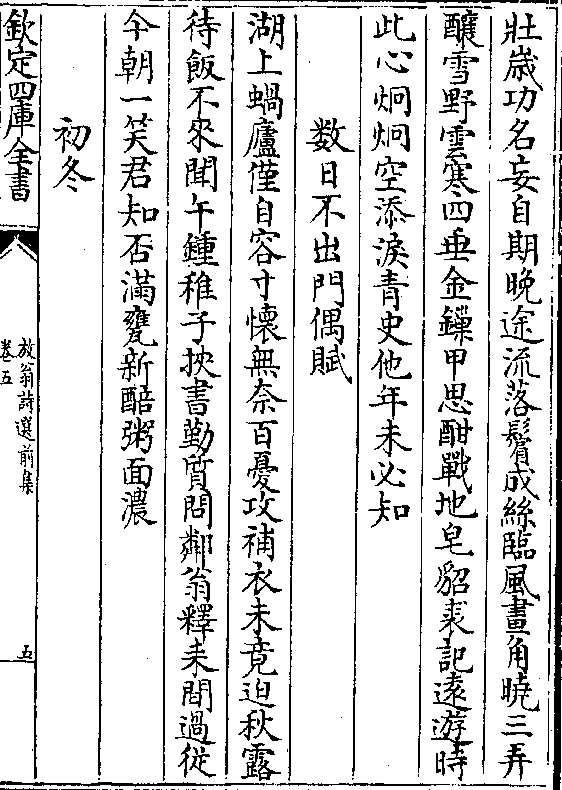 壯歳功名妄自期晚途流落鬢成絲臨風畫角曉三弄
釀雪野雲寒四垂金鏁甲思酣戰地皂貂裘記遠遊時
此心炯炯空添淚青史他年未必知
數日不出門偶賦
湖上蝸廬僅自容寸懷無奈百憂攻補衣未竟迫秋露
待飯不來聞午鍾稚子挾書勤質問鄰翁釋耒間過從
今朝一笑君知否滿甕新醅粥面濃
初冬
欽定四庫全書
放翁詩選前集
卷五
五